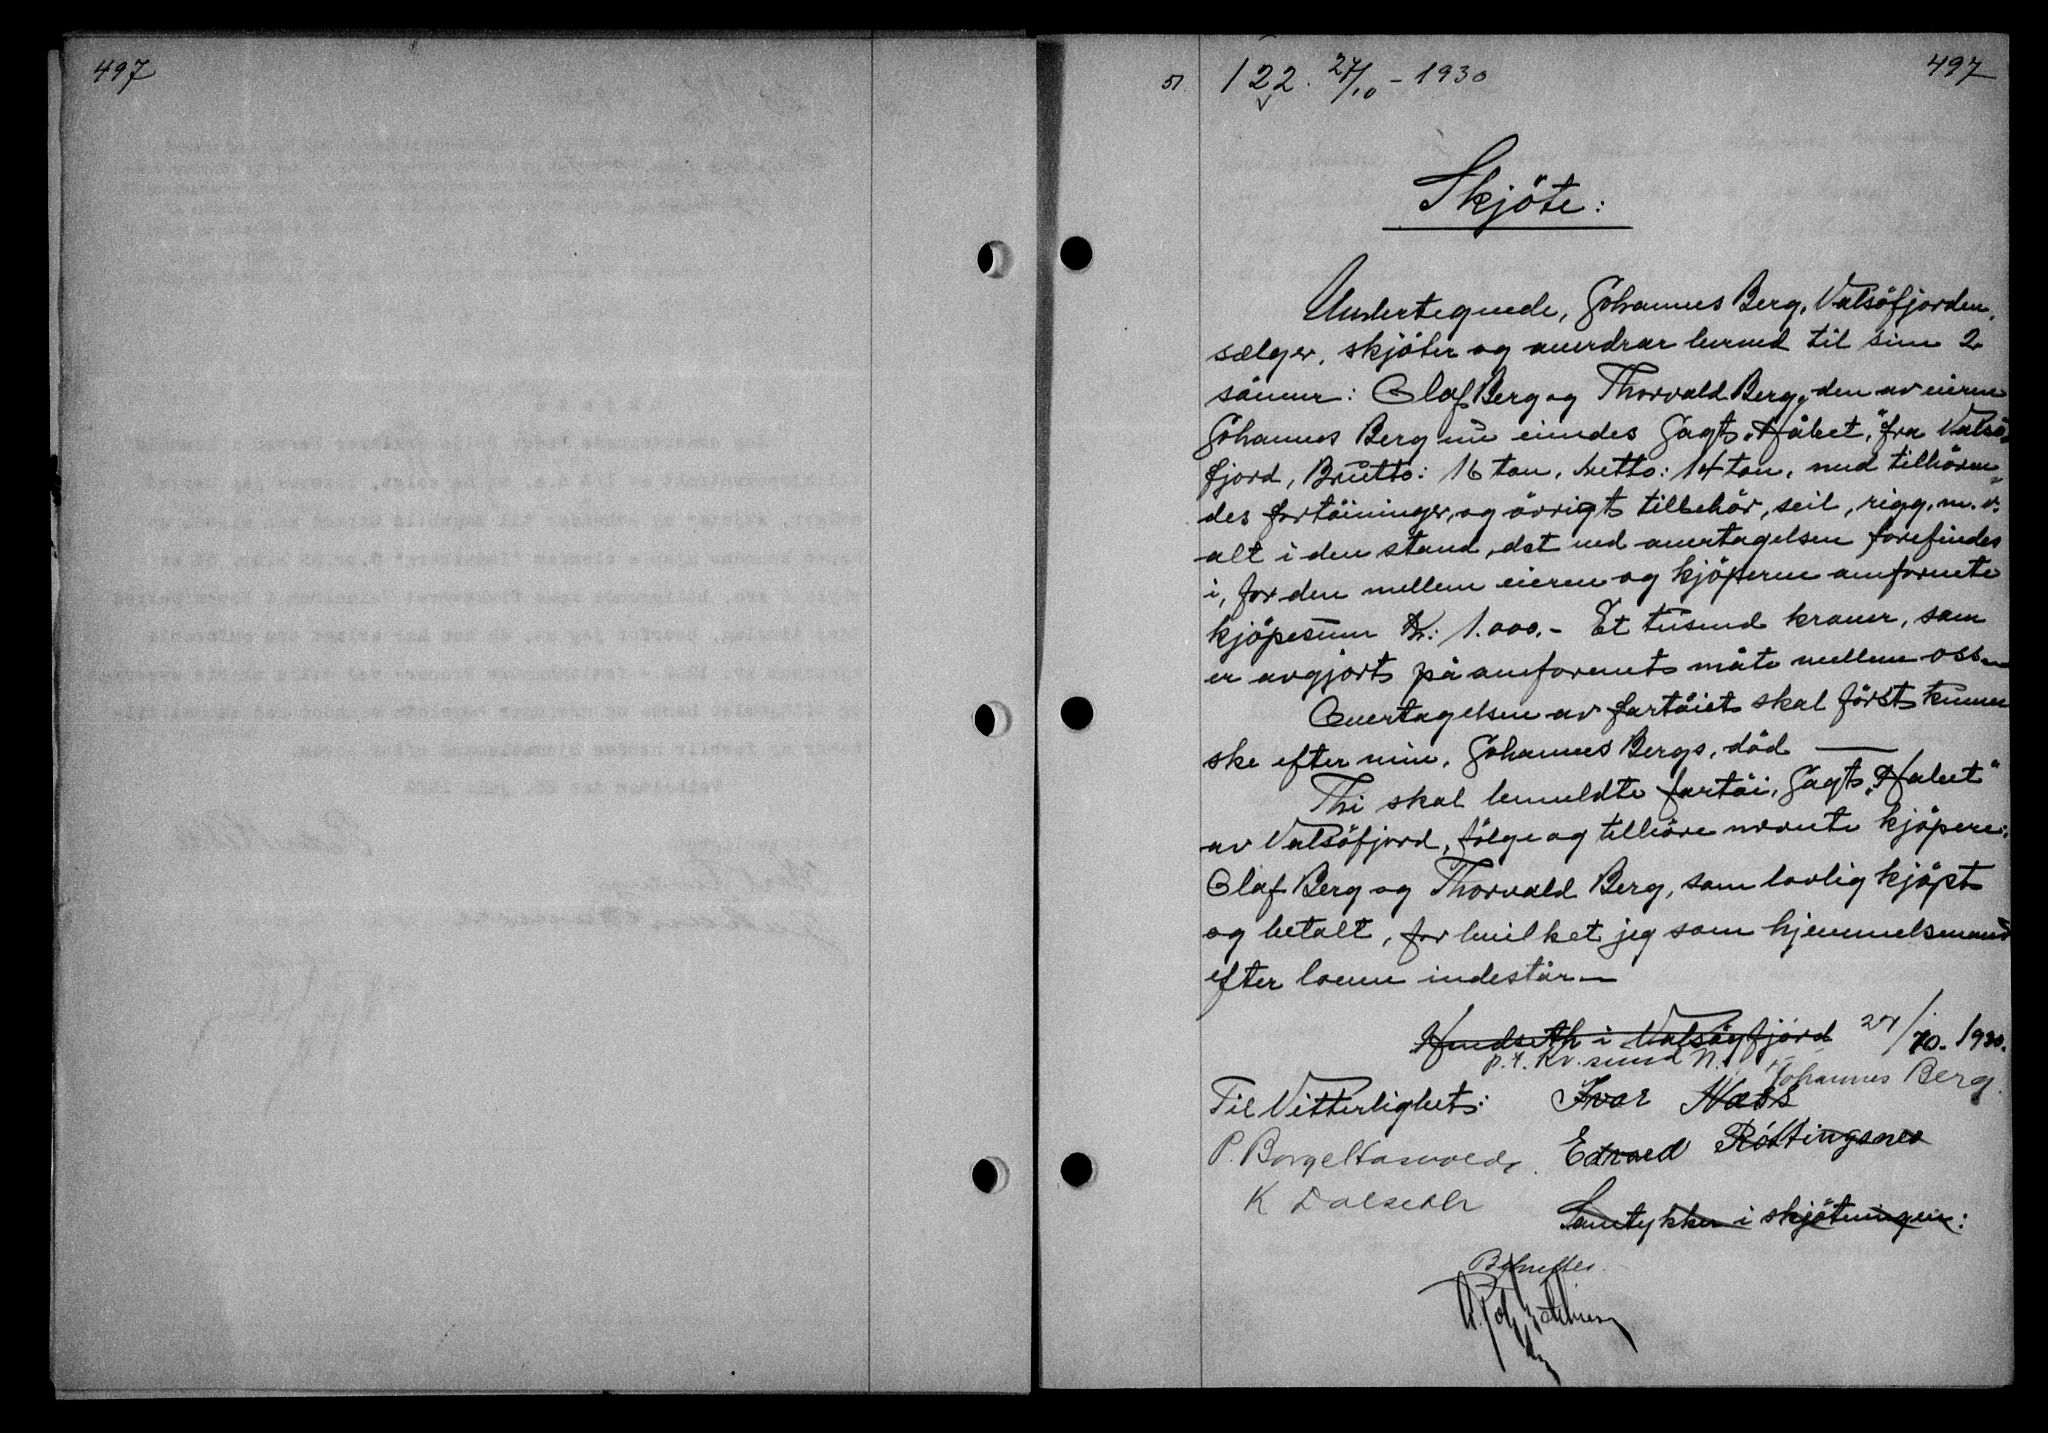 497
51 122. 27/10 - 1930
497
Skjöte:
Undertegnede, Johannes Berg, Valsöfjorden,
sælger, skjöter og overdrar herved til sine 2
sönner: Olaf Berg og Thorvald Berg, den av eieren
Johannes Berg nu eiendes Jagt "Håbet," fra Valsö-
fjord, Brutto: 16 ton, Netto: 14 ton, med tilhören-
des fortöininger, og övrigt tilbehör, seil, rigg, m. v.
alt i den stand, det ved overtagelsen forefindes
i, for den mellem eieren og kjöperne omforente
kjöpesum Kr: 1.000.- Et tusend kroner, som
er avgjort på omforenet måte mellem oss.—
Overtagelsen av fartöiet skal först kunne
ske efter min, Johannes Bergs, död —
Thi skal bemeldte fartöi, Jagt "Håbet"
av Valsöfjord, fölge og tilhöre nævnte kjöpere:
Olaf Berg og Thorvald Berg, som lovlig kjöpt
og betalt, for hvilket jeg som hjemmelsmand
efter loven indestår—
Hundseth i Valsögfjord 27/10. 1930.
p. t. Kr. sund N.
Johannes Berg
Til Vitterlighet: Ivar Næss
P. Edvard Röttingsnes
K Dalseth
Samtykker i skjötningen:
Bekreftes